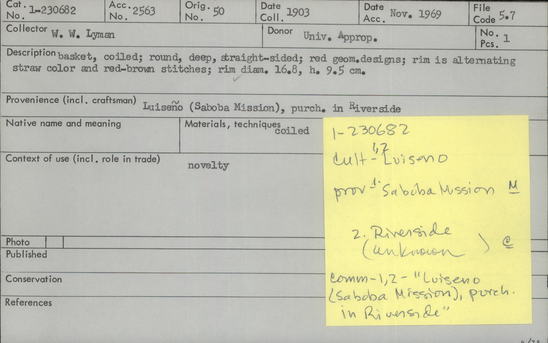 Cat. No. 1-230682 Acc. No. 2563 Orig. No. 50 Date Coll. 1903 Date Acc. Nov. 1969 File Code 5.7
Collector W. W. Lyman Donor Univ. Approp. No. Pcs. 1
Description basket, coiled; round, deep, straight-sided; red geom.designs; rim is alternating
straw color and red-brown stitches; rim diam. 16.8, h. 9.5 cm.
Provenience (incl. craftsman) Luiseño (Saboba Mission), purch. in Riverside
Native name and meaning Materials, techniques coiled
Context of use (incl. role in trade) novelty
Photo
Published
Conservation
References
1-230682
1,2
Cult - Luiseno
prov - 1. Saboba Mission M
2. Riverside
(unknown) C
comm-1,2- "Luiseno
(Saboba Mission), purch.
in Riverside"